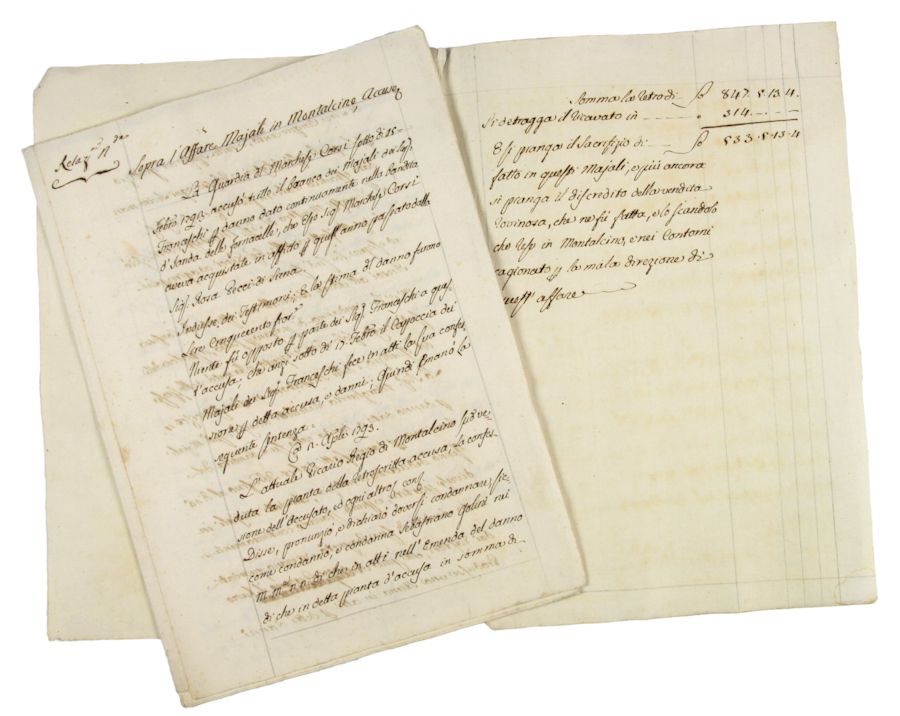 Relaz.e N.° 2.do
Sopra l'Affare Majali in Montalcino, Accuse
La Guardia di Marchese Corsi sotto di 15
Febb.o 1793. accusò tutto il branco dei Majali dei Sig.ri
Franceschi p danno dato continuamente nella bandita
d'Sonda della fornacella, che esso Sig.e Marchese Corsi
aveva acquistate in affitto p quest'anno passato dalla
Sig.ra Rosa Pecci di Siena
Indusse dei Testimoni; E la stima del danno furono
Lire Cinquecento fior.
Niente fù opposto p parte dei Sig.ri Franceschi a ques
t'accusa; che anzi sotto dì 17. Febb.o il Capoccia dei
Majali dei Sig.ri Franceschi fece in atti la sua confes
sione p detta accusa, e danni; Quindi Emanò la
seguente sentenza
@ 12. Aprile 1793.
L'attuale Vicario Regio di Montalcino sud.o ve
duta la pianta della retroscritta accusa, la confes
sione dell'Accusato, ed ogni altro cons.
Disse, pronunziò, e dichiarò doversi condannare, sic
come condannò, e condanna Sebastiano Galini nei
m.m. n.n. di che in atti nell'Emenda del danno
di che in detta pianta d'accusa in somma di
Somma la Retro di 847. 5. 13. 4.
Si detragga il Ricavato in 314.
Essi pianga il Sacrifizio di 533. 5. 13. 4
fatto in questi Majali, e più ancora
si pianga il discredito della vendita
rovinosa, che ne fù fatta, e lo scandolo
che Resp in Montalcino, e nei Contorni
cagionato p la mala direzione di
quest' affare